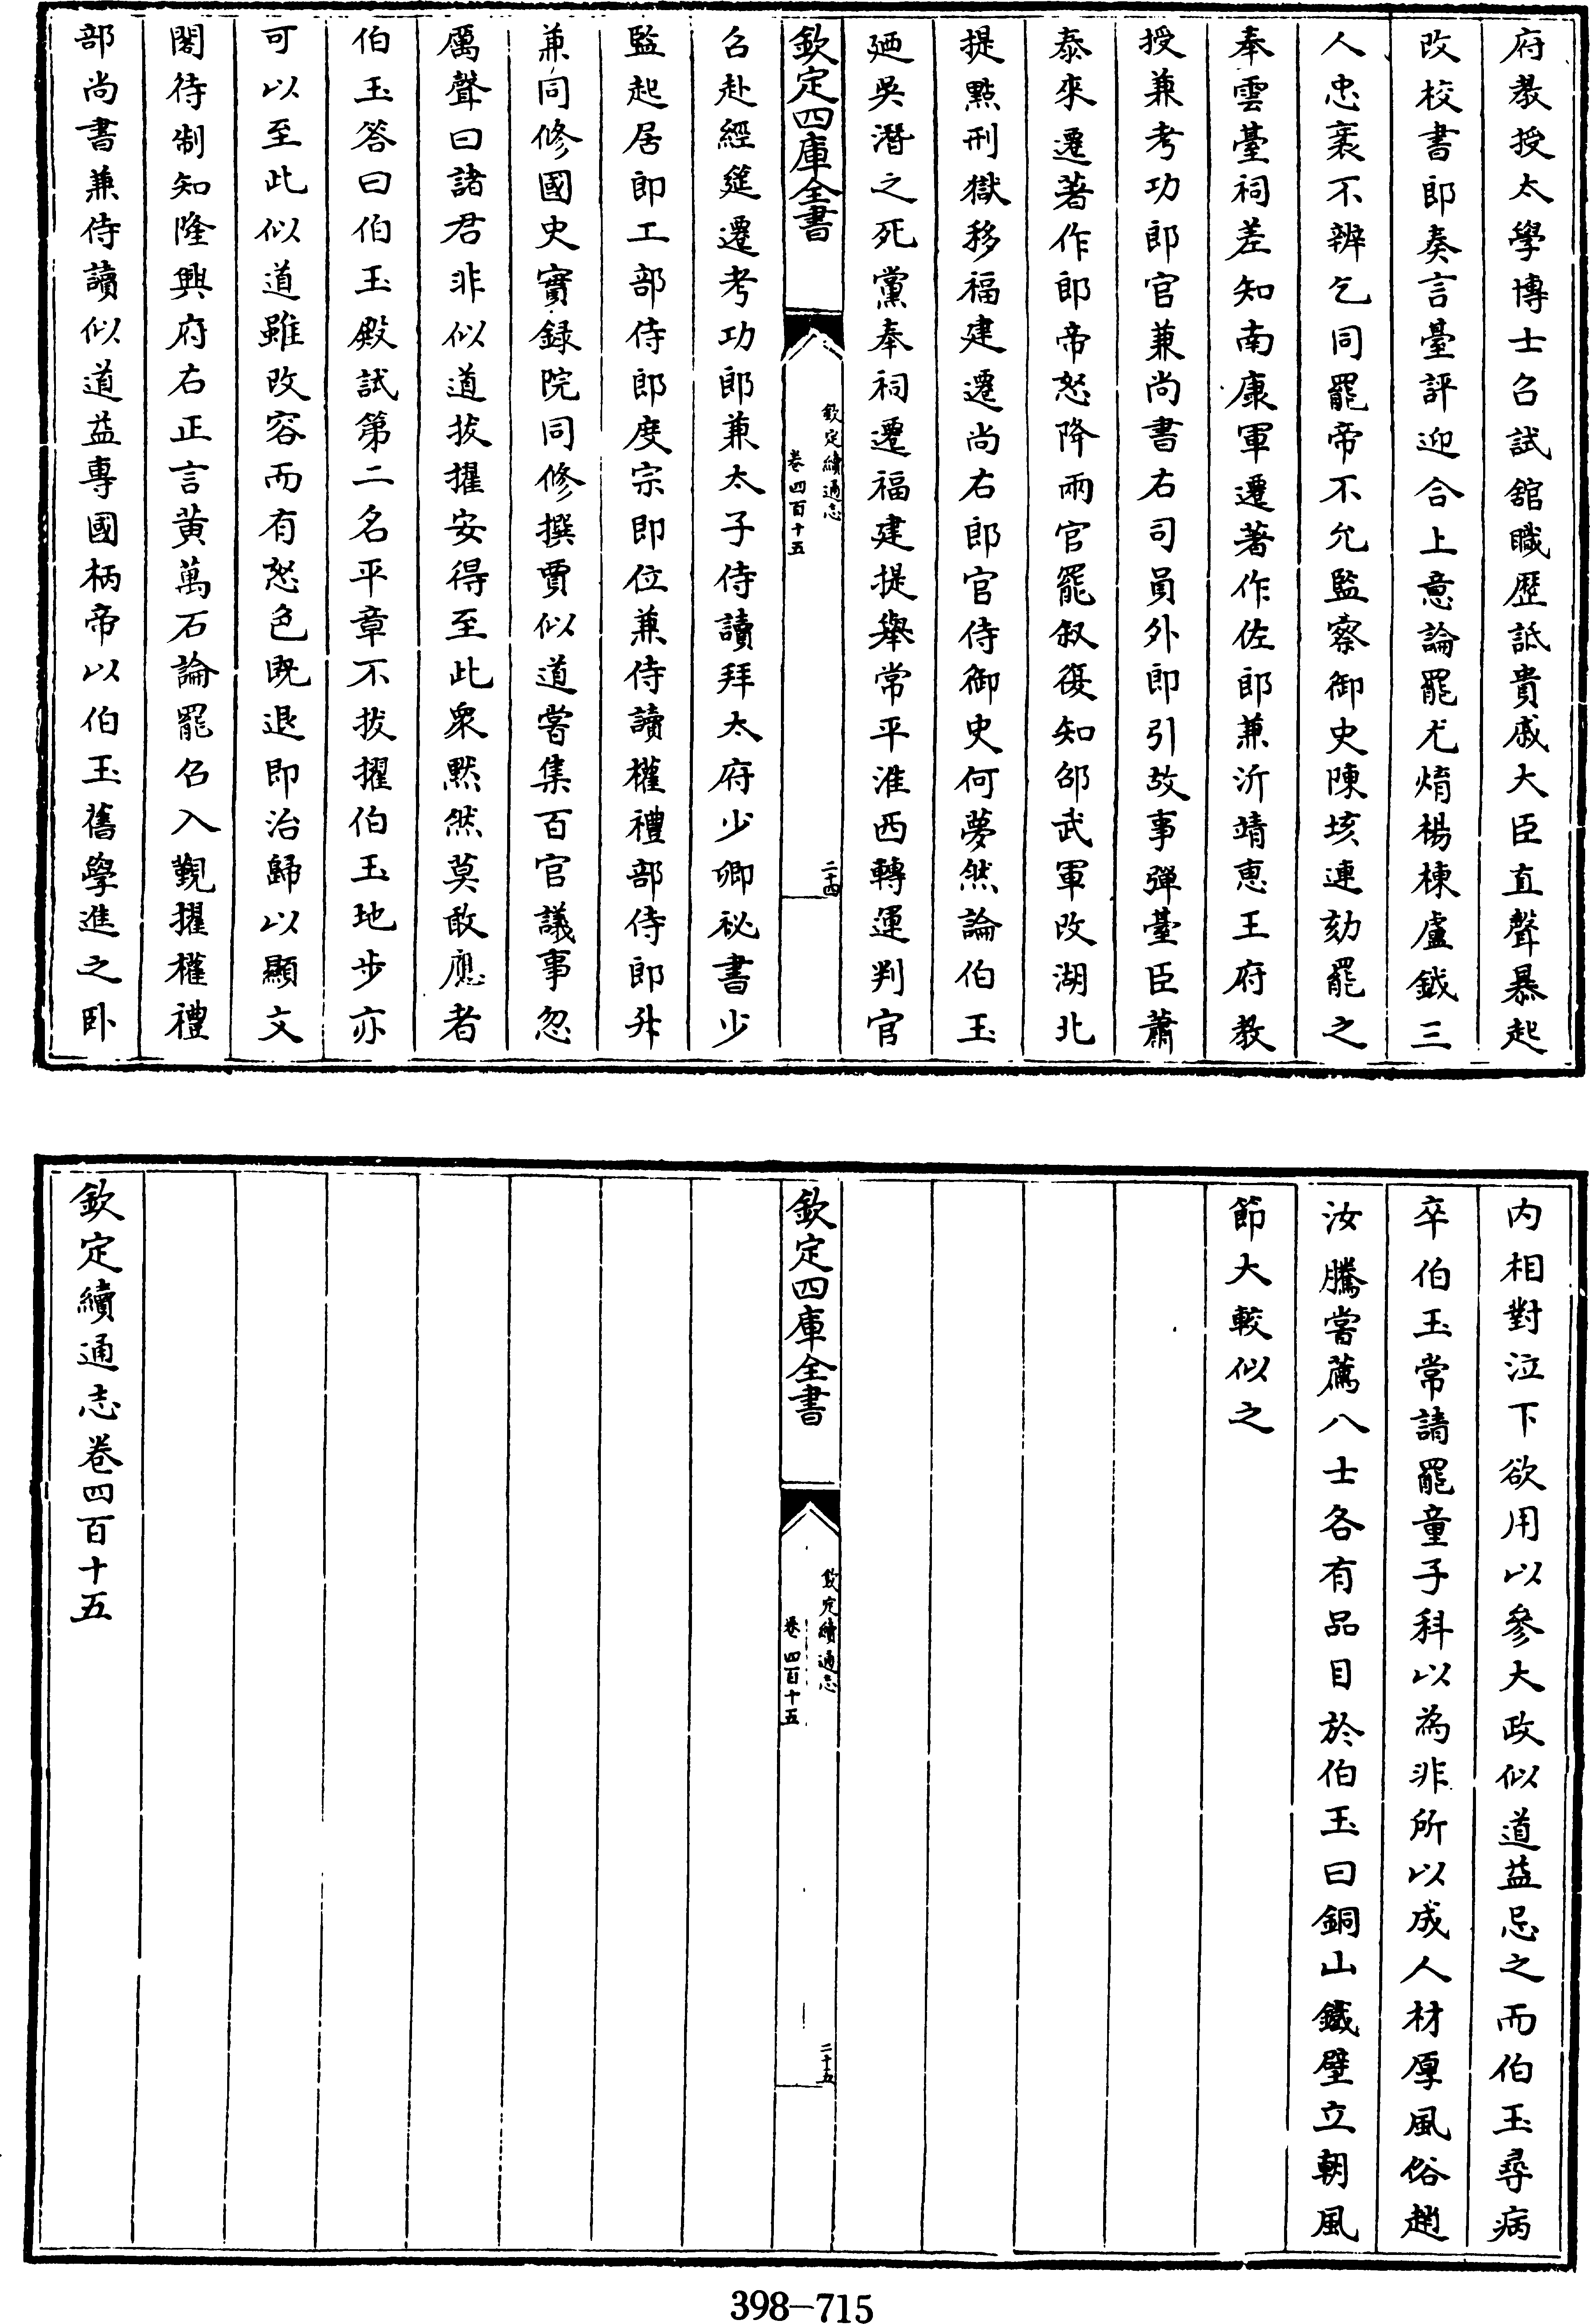 府教授太學博士召試舘職歴詆貴戚大臣直聲暴起
改校書郎奏言臺評迎合上意論罷尤焴楊棟盧鉞三
人忠衺不辨乞同罷帝不允監察御史陳垓連劾罷之
奉雲臺祠差知南康軍遷著作佐郎兼沂靖恵王府教
授兼考功郎官兼尚書右司員外郎引故事彈臺臣蕭
泰來遷著作郎帝怒降兩官罷叙復知邵武軍改湖北
提點刑獄移福建遷尚右郎官侍御史何夢然論伯玉
廼吳潛之死黨奉祠遷福建提舉常平淮西轉運判官
欽定四庫全書
欽定續通志
卷四百十五
二十四
召赴經筵遷考功郎兼太子侍讀拜太府少卿祕書少
監起居郎工部侍郎度宗即位兼侍讀權禮部侍郎升
兼同修國史實録院同修撰賈似道嘗集百官議事忽
厲聲曰諸君非似道拔擢安得至此衆黙然莫敢應者
伯玉答曰伯玉殿試第二名平章不拔擢伯玉地步亦
可以至此似道雖改容而有怒色既退即治歸以顯文
閣待制知隆興府右正言黄萬石論罷召入覲擢權禮
部尚書兼侍讀似道益專國柄帝以伯玉舊學進之卧
内相對泣下欲用以參大政似道益忌之而伯玉尋病
卒伯玉常請罷童子科以為非所以成人材厚風俗趙
汝騰嘗薦八士各有品目於伯玉曰銅山鐵壁立朝風
節大較似之
欽定四庫全書
欽定續通志
卷四百十五
二十五
欽定續通志卷四百十五
398-715